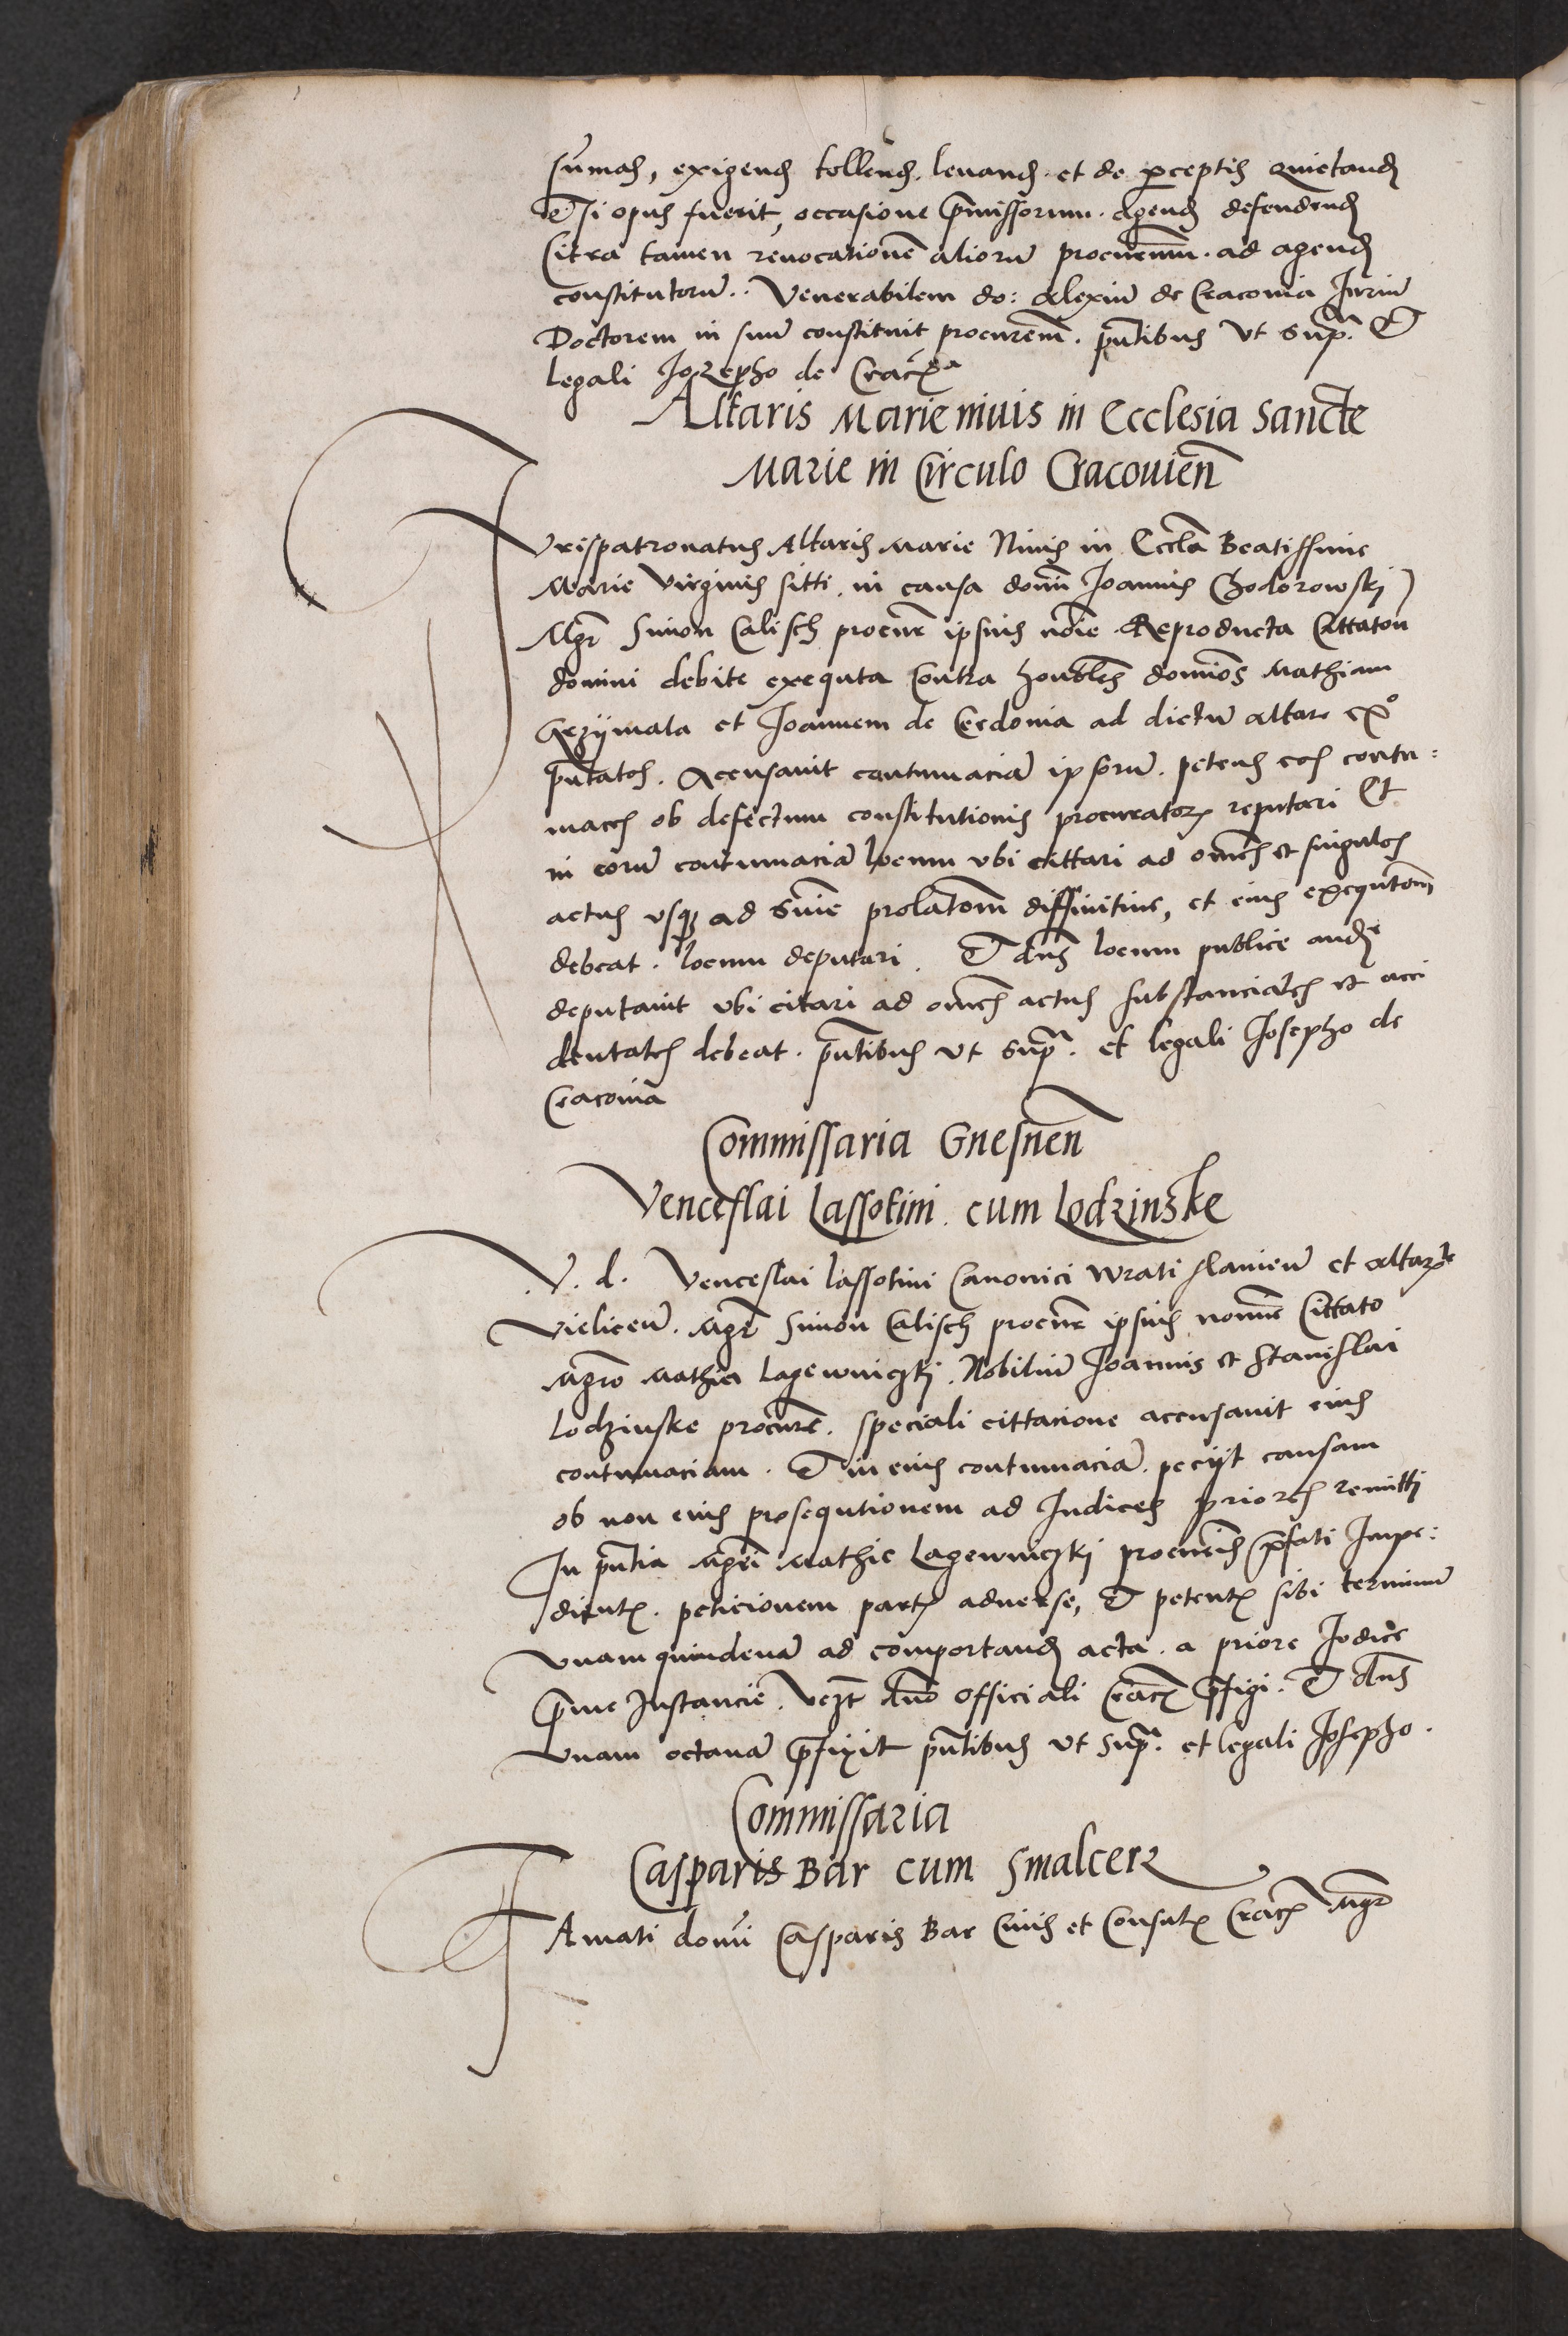 sum̄as, exigend tollend. levand. et de p̱ceptis Quietand
Et si opus fuerit, occasione p̄missorum. agend defendend
Citra tamen revocationē aliorū procur̄nm̄. ad agend
constitutorū.. Venerabilem do: Alexiū de Cracovia Juriū
Doctorem in suū constituit procurem̄. pn̄tibus Vt supra. Et
legali Jozepho de Crac̄ia
Altaris Marie nivis in Ecclesia Sancte
Marie in Circulo Cracovien̄
Jvrispatronatus Altaris Marie Nivis in Eccl̄a Beatissime
Marie Virginis sitti. in causa domī Joannis Chodorowskj
Mgr̄ Simon Calisch procur̄ ipsius noīe Reproducta Cittatōn
domini debite exequta Contra honbl̄es domīos Mathiam
Grzijmala et Joannem de Cerdonia ad dictū altare ex°
pn̄tatos. Accusavit contumaciā ipsorū. petens eos contu:
maces ob defectum constitutionis procurator̄ reputari Et
in eorū contumaciā locum vbi cittari ad omēs et singulos
actus vsq̨ ad Sn̄ie prolatōm diffinitive, et eius exequtōm
debeat. locum deputari. Et dn̄s locum publice aud̄e
deputavit vbi citari ad omēs actus substanciales et acci
dentales debeat. pn̄tibus vt supra. et legali Josepho de
Cracovia
Commissaria Gnesnen̄
Venceslai Lassotini cum Lodzinske
V. d. Venceslai lassotini Canonici Wratislavien̄ et altaris̄te
Vielicen̄. Mgr̄ Simon Calisch procur̄ ipsius nomīe Cittato
Mgrō Mathia Lagewniczkj. Nobiliū Joannis et Stanislai
Lodzinske procurē. speciali cittacione accusavit eius
contumaciam. Et in eius contumaciā. peciit causam
ob non eius prosequtionem ad Judices priores remitti
In pn̄tia Mgrī Mathie Lagewniczkj procur̄is p̄fati Impe:
dient̄. peticionem part̄ adverse, Et petent̄ sibi terminū
vnam quindenā ad comportand acta. a priore Judice
p̄me Instancie. vczt̄ dn̄o officiali Crac̄ p̄figi. Et dn̄s
vnam octavā p̄fixit pn̄tibus vt supra. et legali Josepho.
Commissaria
Casparis Bar cum Smalcerz
Famati domī Casparis Bar Civis et Consul̄ Crac̄ Mgr̄